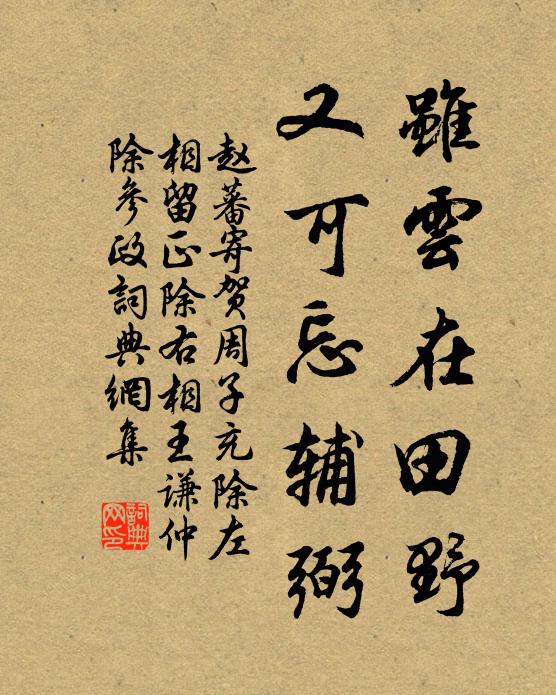 雖雲在田野
又可忘辅弼
赵蕃寄贺周子充除左
相留正除右相王谦仲
除參政詞典網集
詞典網印